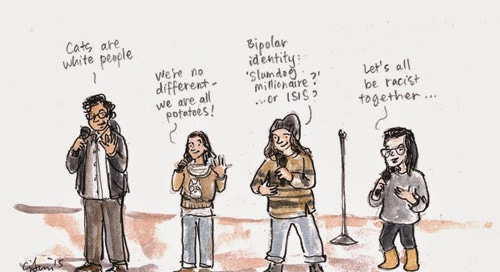 Cats are
white people
We're no
different-
we are all
potatoes!
Bipolar
identity:
'Slumdog
millionaire?'
...or ISIS?
Let's all
be racist
together...